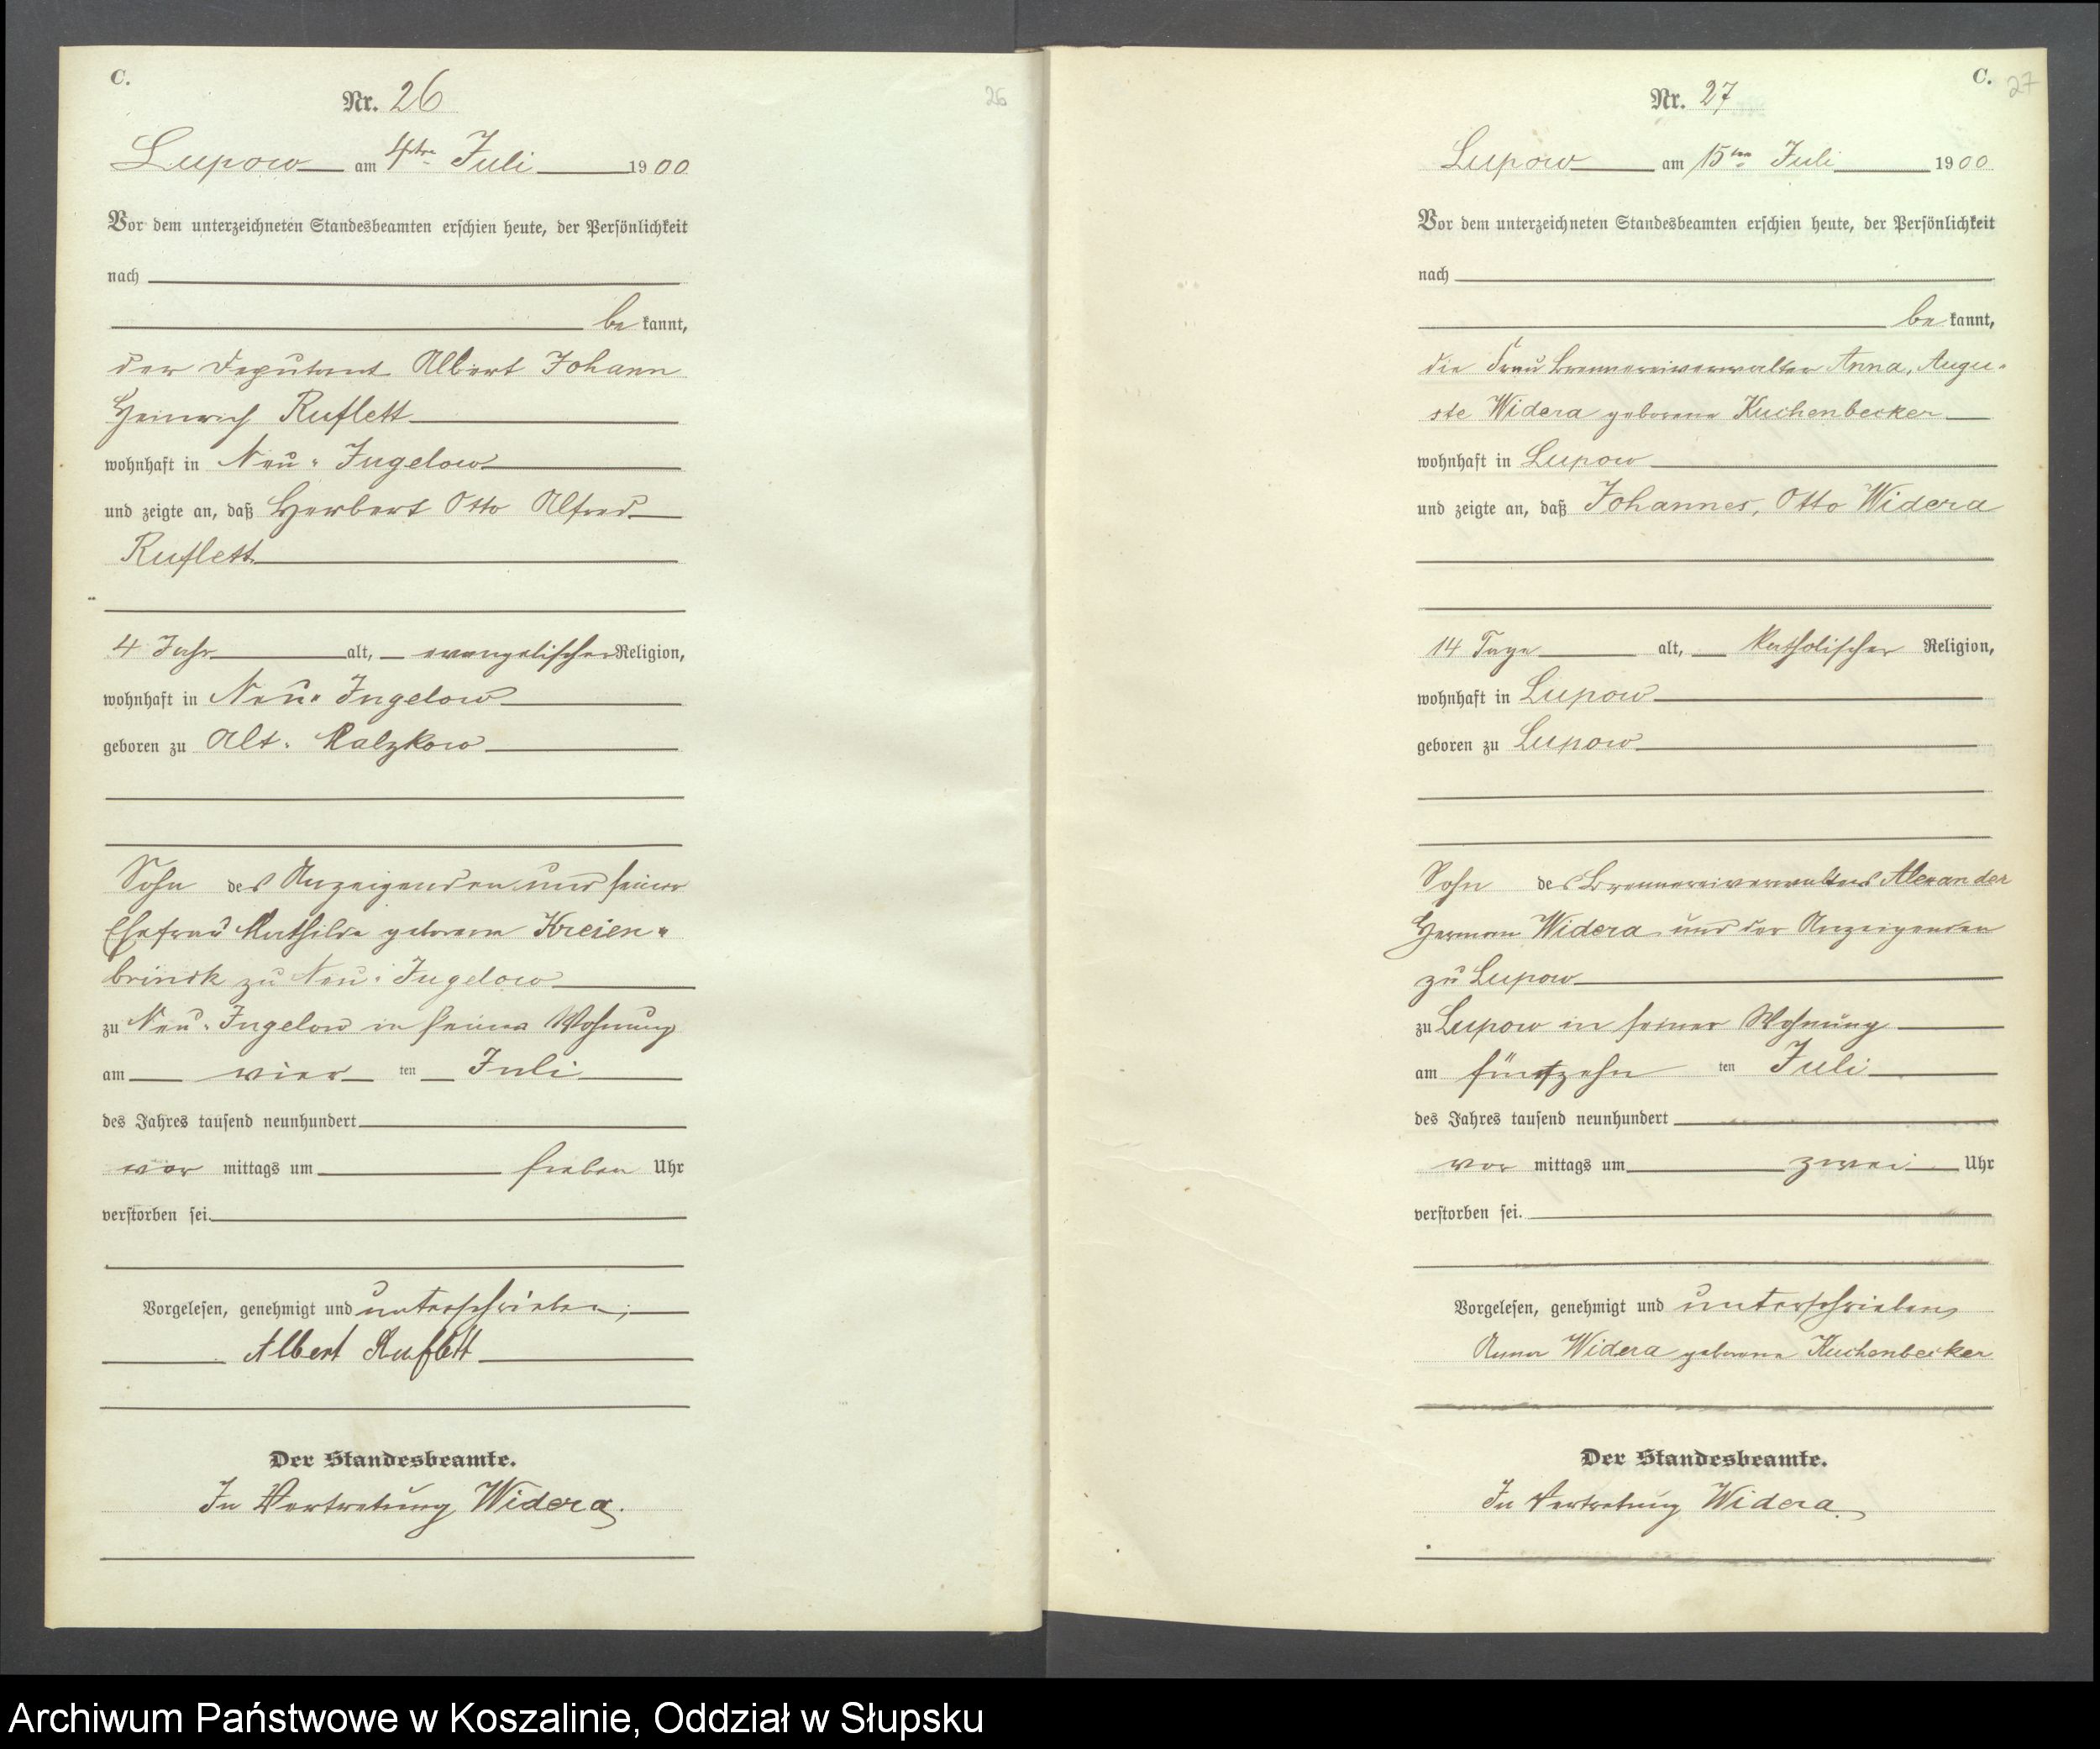 C.
Nr. 26
26
Lupow am 4ten Juli 1900
Vor dem unterzeichneten Standesbeamten erschien heute, der Persönlichkeit
nach
be kannt,
der Deputant Albert Johann
Heinrich Ruflett
wohnhaft in Neu-Jugelow
und zeigte an, daß Herbert Otto Alfred
Ruflett
4 Jahr alt, evangelischer Religion,
wohnhaft in Neu-Jugelow
geboren zu Alt-Malzkow
Sohn des Anzeigenden und seiner
Ehefrau Mathilde geborene Kreien-
brinck zu Neu-Jugelow
zu Neu-Jugelow in seiner Wohnung
am vier ten Juli
des Jahres tausend neunhundert
vor mittags um sieben Uhr
verstorben sei.
Vorgelesen, genehmigt und unterschrieben;
Albert Ruflett
Der Standesbeamte.
In Vertretung Widera.
C.
27
Nr. 27
Lupow am 15ten Juli 1900
Vor dem unterzeichneten Standesbeamten erschien heute, der Persönlichkeit
nach
be kannt,
die Frau Brennereiverwalter Anna, Augu-
ste Widera geborene Kuchenbecker
wohnhaft in Lupow
und zeigte an, daß Johannes, Otto Widera
14 Tage alt, katholischer Religion,
wohnhaft in Lupow
geboren zu Lupow
Sohn des Brennereiverwalters Alexander
Hermann Widera und der Anzeigenden
zu Lupow
zu Lupow in seiner Wohnung
am fünfzehn ten Juli
des Jahres tausend neunhundert
vor mittags um zwei Uhr
verstorben sei.
Vorgelesen, genehmigt und unterschrieben
Anna Widera geborene Kuchenbecker
Der Standesbeamte.
In Vertretung Widera.
Archiwum Państwowe w Koszalinie, Oddział w Słupsku